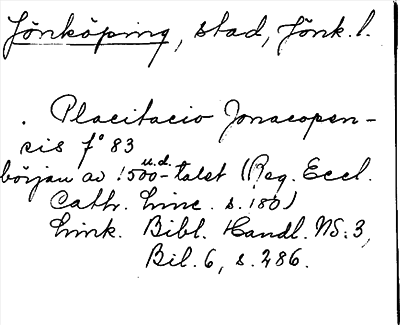 Jönköping, stad, Jönk. l.
. Placitacio Jonacopen-
sis f° 83
u.d.
början av 1500-talet (Reg. Eccl.
Cath. Linc. s. 180)
Link. Bibl. Handl. NS: 3,
Bil. 6, s. 286.